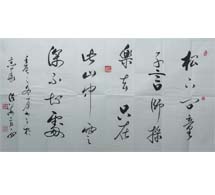 松下问童
子言師採
藥去只在
此山中雲
深不知處